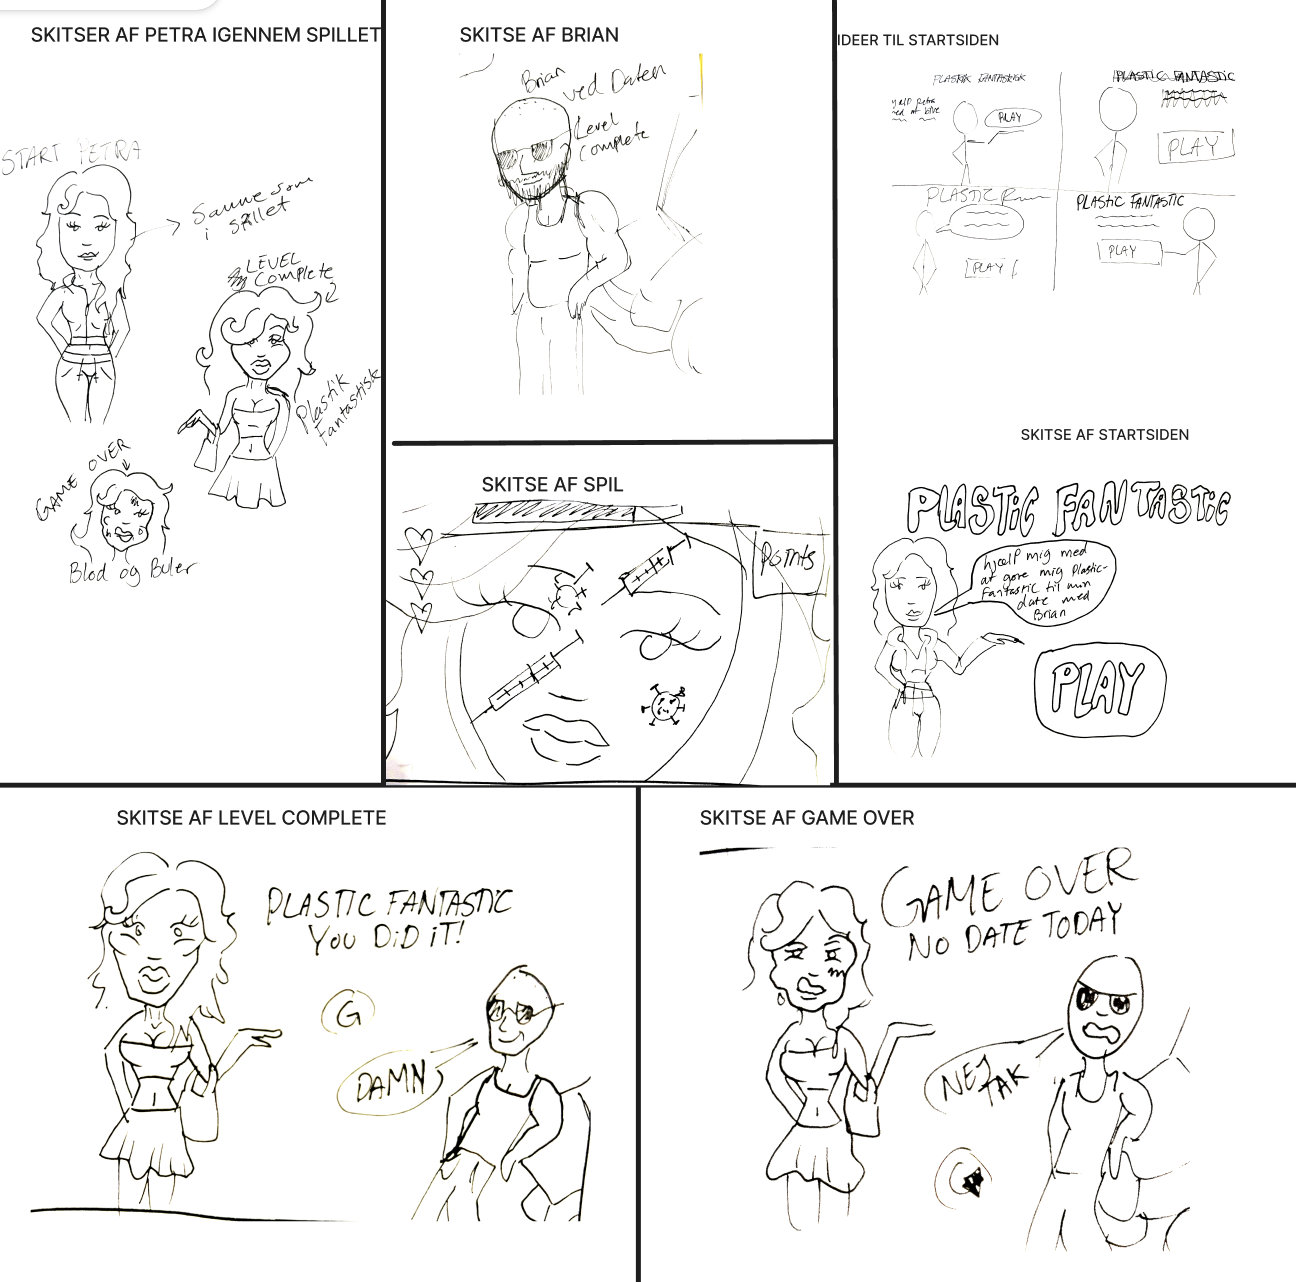 SKITSER AF PETRA IGENNEM SPILLET
START PETRA
Samme som
i spillet
LEVEL
Complete
Plastik
Fantastisk
GAME OVER
Blod og Buler
SKITSE AF BRIAN
Brian
ved Daten
Level
Complete
SKITSE AF SPIL
Points
IDEER TIL STARTSIDEN
PLASTIK FANTASTISK
hjælp Petra
med at blive
PLAY
PLASTIC FANTASTIC
PLAY
PLASTIC
PLAY
PLASTIC FANTASTIC
PLAY
SKITSE AF STARTSIDEN
PLASTIC FANTASTIC
hjælp mig med
at gøre mig Plastic-
Fantastic til min
date med
Brian
PLAY
SKITSE AF LEVEL COMPLETE
PLASTIC FANTASTIC
YOU DID IT!
G
DAMN
SKITSE AF GAME OVER
GAME OVER
NO DATE TODAY
NEJ
TAK